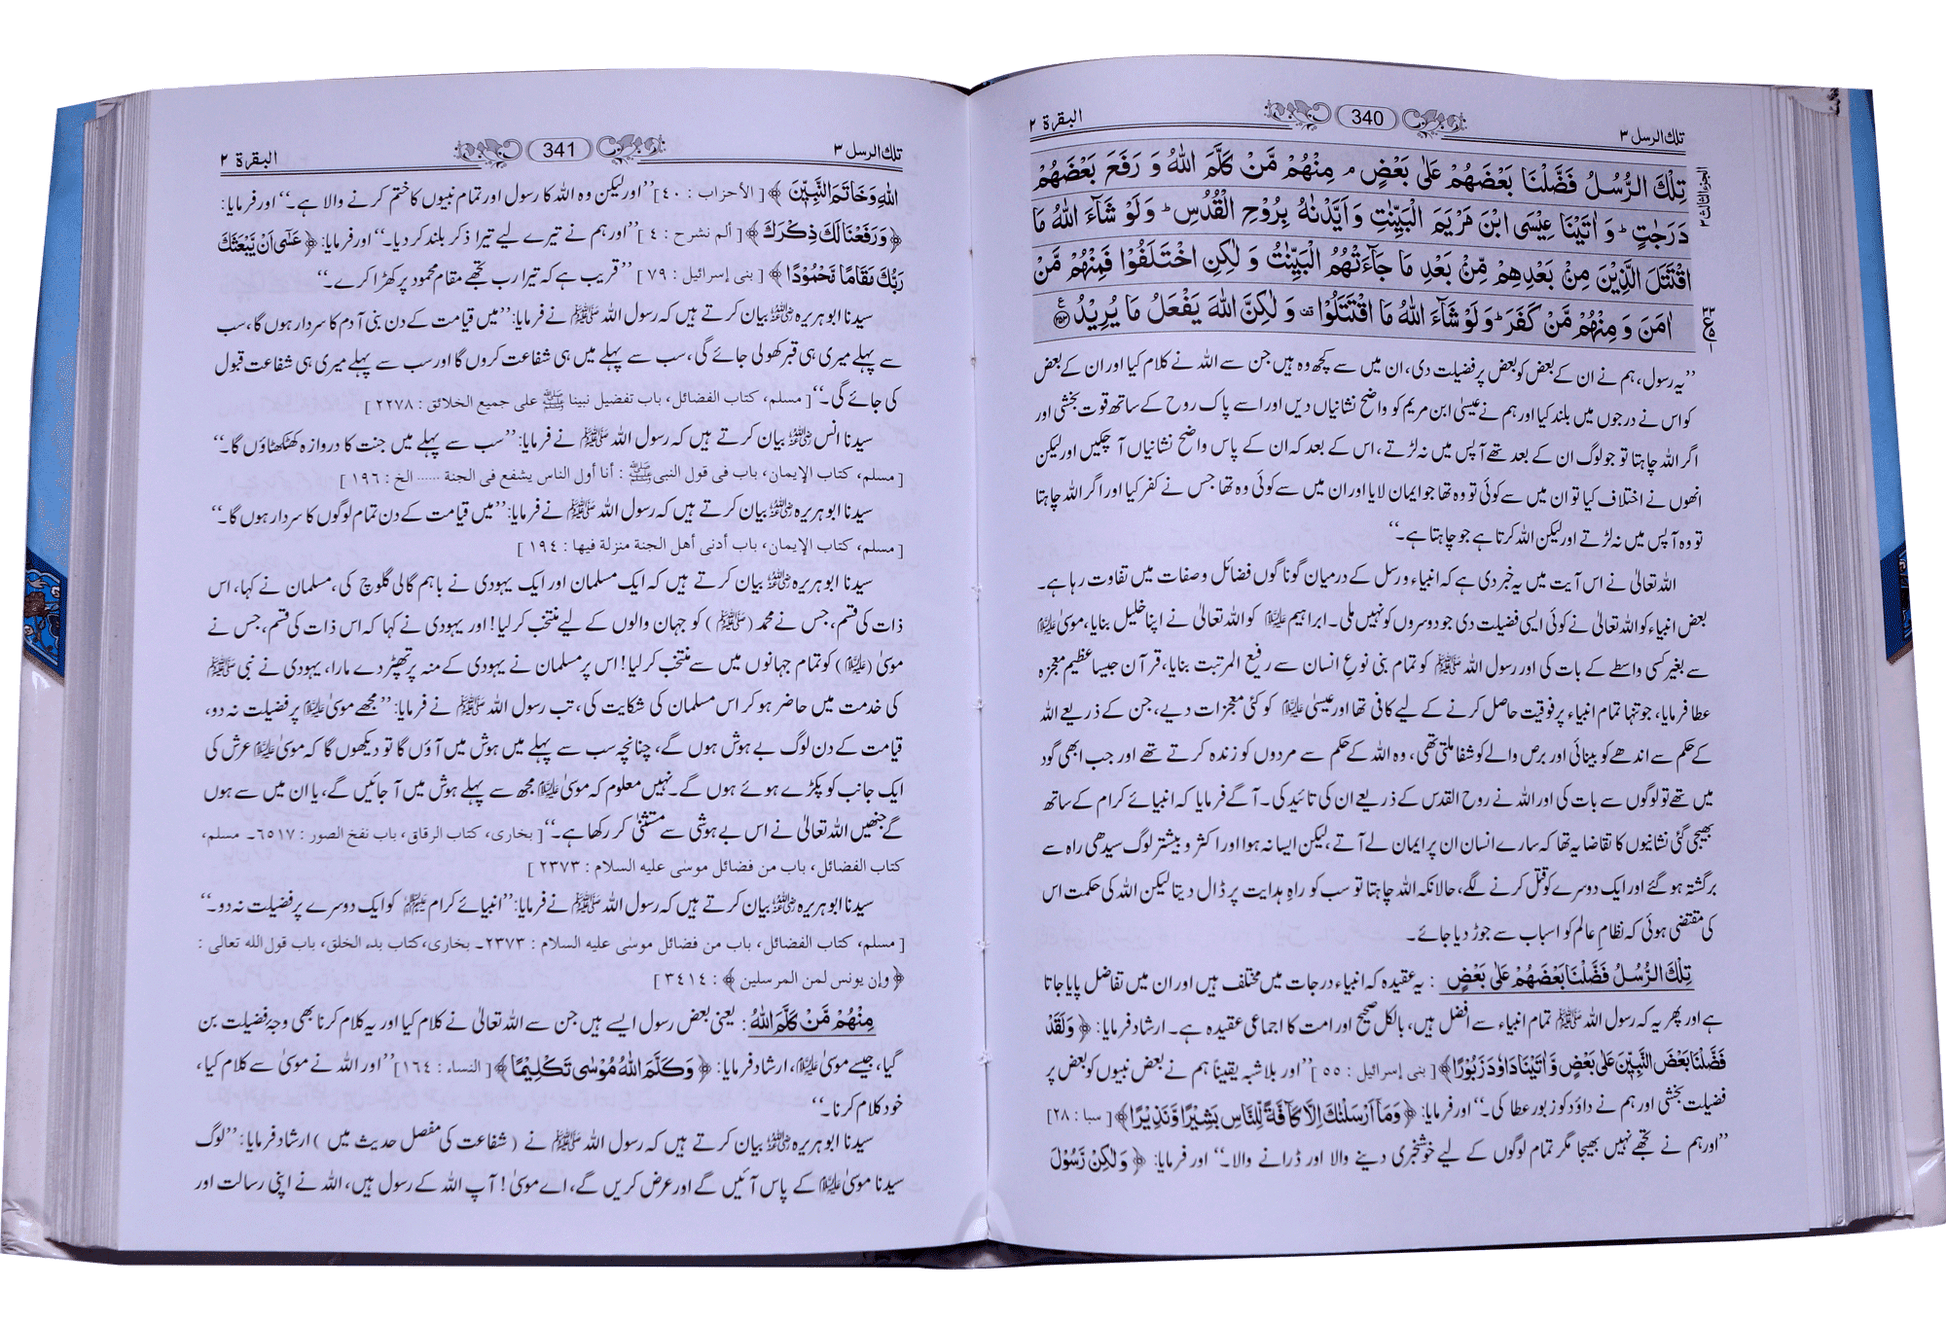 تلك الرسل ٣
340
البقرة ٢
الجزء الثالث ٣
تِلْكَ الرُّسُلُ فَضَّلْنَا بَعْضَهُمْ عَلٰى بَعْضٍ ۘ مِنْهُمْ مَّنْ كَلَّمَ اللّٰهُ وَ رَفَعَ بَعْضَهُمْ
دَرَجٰتٍ ؕ وَ اٰتَيْنَا عِيْسَى ابْنَ مَرْيَمَ الْبَيِّنٰتِ وَ اَيَّدْنٰهُ بِرُوْحِ الْقُدُسِ ؕ وَلَوْ شَآءَ اللّٰهُ مَا
اقْتَتَلَ الَّذِيْنَ مِنْۢ بَعْدِهِمْ مِّنْۢ بَعْدِ مَا جَآءَتْهُمُ الْبَيِّنٰتُ وَ لٰكِنِ اخْتَلَفُوْا فَمِنْهُمْ مَّنْ
اٰمَنَ وَ مِنْهُمْ مَّنْ كَفَرَ ؕ وَلَوْ شَآءَ اللّٰهُ مَا اقْتَتَلُوْا ۫ وَ لٰكِنَّ اللّٰهَ يَفْعَلُ مَا يُرِيْدُ ﴿۲۵۳﴾
”یہ رسول، ہم نے ان کے بعض کو بعض پر فضیلت دی، ان میں سے کچھ وہ ہیں جن سے اللہ نے کلام کیا اور ان کے بعض
کو اس نے درجوں میں بلند کیا اور ہم نے عیسیٰ ابن مریم کو واضح نشانیاں دیں اور اسے پاک روح کے ساتھ قوت بخشی اور
اگر اللہ چاہتا تو جو لوگ ان کے بعد تھے آپس میں نہ لڑتے، اس کے بعد کہ ان کے پاس واضح نشانیاں آ چکیں اور لیکن
انھوں نے اختلاف کیا تو ان میں سے کوئی تو وہ تھا جو ایمان لایا اور ان میں سے کوئی وہ تھا جس نے کفر کیا اور اگر اللہ چاہتا
تو وہ آپس میں نہ لڑتے اور لیکن اللہ کرتا ہے جو چاہتا ہے۔“
اللہ تعالیٰ نے اس آیت میں یہ خبر دی ہے کہ انبیاء و رسل کے درمیان گوناگوں فضائل و صفات میں تفاوت رہا ہے۔
بعض انبیاء کو اللہ تعالیٰ نے کوئی ایسی فضیلت دی جو دوسروں کو نہیں ملی۔ ابراہیم علیہ السلام کو اللہ تعالیٰ نے اپنا خلیل بنایا، موسیٰ علیہ السلام
سے بغیر کسی واسطے کے بات کی اور رسول اللہ ﷺ کو تمام بنی نوع انسان سے رفیع المرتبت بنایا، قرآن جیسا عظیم معجزہ
عطا فرمایا، جو تنہا تمام انبیاء پر فوقیت حاصل کرنے کے لیے کافی تھا اور عیسیٰ علیہ السلام کو کئی معجزات دیے، جن کے ذریعے اللہ
کے حکم سے اندھے کو بینائی اور برص والے کو شفا ملتی تھی، وہ اللہ کے حکم سے مردوں کو زندہ کرتے تھے اور جب ابھی گود
میں تھے تو لوگوں سے بات کی اور اللہ نے روح القدس کے ذریعے ان کی تائید کی۔ آگے فرمایا کہ انبیائے کرام کے ساتھ
بھیجی گئی نشانیوں کا تقاضا یہ تھا کہ سارے انسان ان پر ایمان لے آتے، لیکن ایسا نہ ہوا اور اکثر و بیشتر لوگ سیدھی راہ سے
برگشتہ ہو گئے اور ایک دوسرے کو قتل کرنے لگے، حالانکہ اللہ چاہتا تو سب کو راہِ ہدایت پر ڈال دیتا لیکن اللہ کی حکمت اس
کی مقتضی ہوئی کہ نظامِ عالم کو اسباب سے جوڑ دیا جائے۔
تِلْكَ الرُّسُلُ فَضَّلْنَا بَعْضَهُمْ عَلٰى بَعْضٍ : یہ عقیدہ کہ انبیاء درجات میں مختلف ہیں اور ان میں تفاضل پایا جاتا
ہے اور پھر یہ کہ رسول اللہ ﷺ تمام انبیاء سے افضل ہیں، بالکل صحیح اور امت کا اجماعی عقیدہ ہے۔ ارشاد فرمایا: ﴿ وَ لَقَدْ
فَضَّلْنَا بَعْضَ النَّبِيّٖنَ عَلٰى بَعْضٍ وَّ اٰتَيْنَا دَاوٗدَ زَبُوْرًا ﴾ [ بنی إسرائیل : ٥٥ ] ”اور بلاشبہ یقیناً ہم نے بعض نبیوں کو بعض پر
فضیلت بخشی اور ہم نے داؤد کو زبور عطا کی۔“ اور فرمایا: ﴿ وَ مَاۤ اَرْسَلْنٰكَ اِلَّا كَآفَّةً لِّلنَّاسِ بَشِيْرًا وَّ نَذِيْرًا ﴾ [ سبا : ٢٨ ]
”اور ہم نے تجھے نہیں بھیجا مگر تمام لوگوں کے لیے خوشخبری دینے والا اور ڈرانے والا۔“ اور فرمایا: ﴿ وَ لٰكِنْ رَّسُوْلَ
تلك الرسل ٣
341
البقرة ٢
اللّٰهِ وَ خَاتَمَ النَّبِيّٖنَ ﴾ [ الأحزاب : ٤٠ ] ”اور لیکن وہ اللہ کا رسول اور تمام نبیوں کا ختم کرنے والا ہے۔“ اور فرمایا:
﴿ وَ رَفَعْنَا لَكَ ذِكْرَكَ ﴾ [ ألم نشرح : ٤ ] ”اور ہم نے تیرے لیے تیرا ذکر بلند کر دیا۔“ اور فرمایا: ﴿ عَسٰۤى اَنْ يَّبْعَثَكَ
رَبُّكَ مَقَامًا مَّحْمُوْدًا ﴾ [ بنی إسرائیل : ٧٩ ] ”قریب ہے کہ تیرا رب تجھے مقام محمود پر کھڑا کرے۔“
سیدنا ابوہریرہ رضی اللہ عنہ بیان کرتے ہیں کہ رسول اللہ ﷺ نے فرمایا: ”میں قیامت کے دن بنی آدم کا سردار ہوں گا، سب
سے پہلے میری ہی قبر کھولی جائے گی، سب سے پہلے میں ہی شفاعت کروں گا اور سب سے پہلے میری ہی شفاعت قبول
کی جائے گی۔“ [ مسلم، کتاب الفضائل، باب تفضیل نبینا ﷺ علی جمیع الخلائق : ٢٢٧٨ ]
سیدنا انس رضی اللہ عنہ بیان کرتے ہیں کہ رسول اللہ ﷺ نے فرمایا: ”سب سے پہلے میں جنت کا دروازہ کھٹکھٹاؤں گا۔“
[ مسلم، کتاب الإیمان، باب فی قول النبی ﷺ : أنا أول الناس یشفع فی الجنة ...... الخ : ١٩٦ ]
سیدنا ابوہریرہ رضی اللہ عنہ بیان کرتے ہیں کہ رسول اللہ ﷺ نے فرمایا: ”میں قیامت کے دن تمام لوگوں کا سردار ہوں گا۔“
[ مسلم، کتاب الإیمان، باب أدنی أهل الجنة منزلة فیها : ١٩٤ ]
سیدنا ابوہریرہ رضی اللہ عنہ بیان کرتے ہیں کہ ایک مسلمان اور ایک یہودی نے باہم گالی گلوچ کی، مسلمان نے کہا، اس
ذات کی قسم، جس نے محمد (ﷺ) کو جہان والوں کے لیے منتخب کر لیا! اور یہودی نے کہا کہ اس ذات کی قسم، جس نے
موسیٰ (علیہ السلام) کو تمام جہانوں میں سے منتخب کر لیا! اس پر مسلمان نے یہودی کے منہ پر تھپڑ دے مارا، یہودی نے نبی ﷺ
کی خدمت میں حاضر ہو کر اس مسلمان کی شکایت کی، تب رسول اللہ ﷺ نے فرمایا: ”مجھے موسیٰ علیہ السلام پر فضیلت نہ دو،
قیامت کے دن لوگ بے ہوش ہوں گے، چنانچہ سب سے پہلے میں ہوش میں آؤں گا تو دیکھوں گا کہ موسیٰ علیہ السلام عرش کی
ایک جانب کو پکڑے ہوئے ہوں گے۔ نہیں معلوم کہ موسیٰ علیہ السلام مجھ سے پہلے ہوش میں آ جائیں گے، یا ان میں سے ہوں
گے جنھیں اللہ تعالیٰ نے اس بے ہوشی سے مستثنیٰ کر رکھا ہے۔“ [ بخاری، کتاب الرقاق، باب نفخ الصور : ٦٥١٧۔ مسلم،
کتاب الفضائل، باب من فضائل موسٰی علیه السلام : ٢٣٧٣ ]
سیدنا ابوہریرہ رضی اللہ عنہ بیان کرتے ہیں کہ رسول اللہ ﷺ نے فرمایا: ”انبیائے کرام علیہم السلام کو ایک دوسرے پر فضیلت نہ دو۔“
[ مسلم، کتاب الفضائل، باب من فضائل موسٰی علیه السلام : ٢٣٧٣۔ بخاری، کتاب بدء الخلق، باب قول الله تعالی :
﴿ وإن یونس لمن المرسلین ﴾ : ٣٤١٤ ]
مِنْهُمْ مَّنْ كَلَّمَ اللّٰهُ : یعنی بعض رسول ایسے ہیں جن سے اللہ تعالیٰ نے کلام کیا اور یہ کلام کرنا بھی وجہ فضیلت بن
گیا، جیسے موسیٰ علیہ السلام، ارشاد فرمایا: ﴿ وَ كَلَّمَ اللّٰهُ مُوْسٰى تَكْلِيْمًا ﴾ [ النساء : ١٦٤ ] ”اور اللہ نے موسیٰ سے کلام کیا،
خود کلام کرنا۔“
سیدنا ابوہریرہ رضی اللہ عنہ بیان کرتے ہیں کہ رسول اللہ ﷺ نے ( شفاعت کی مفصل حدیث میں ) ارشاد فرمایا: ”لوگ
سیدنا موسیٰ علیہ السلام کے پاس آئیں گے اور عرض کریں گے، اے موسیٰ! آپ اللہ کے رسول ہیں، اللہ نے اپنی رسالت اور